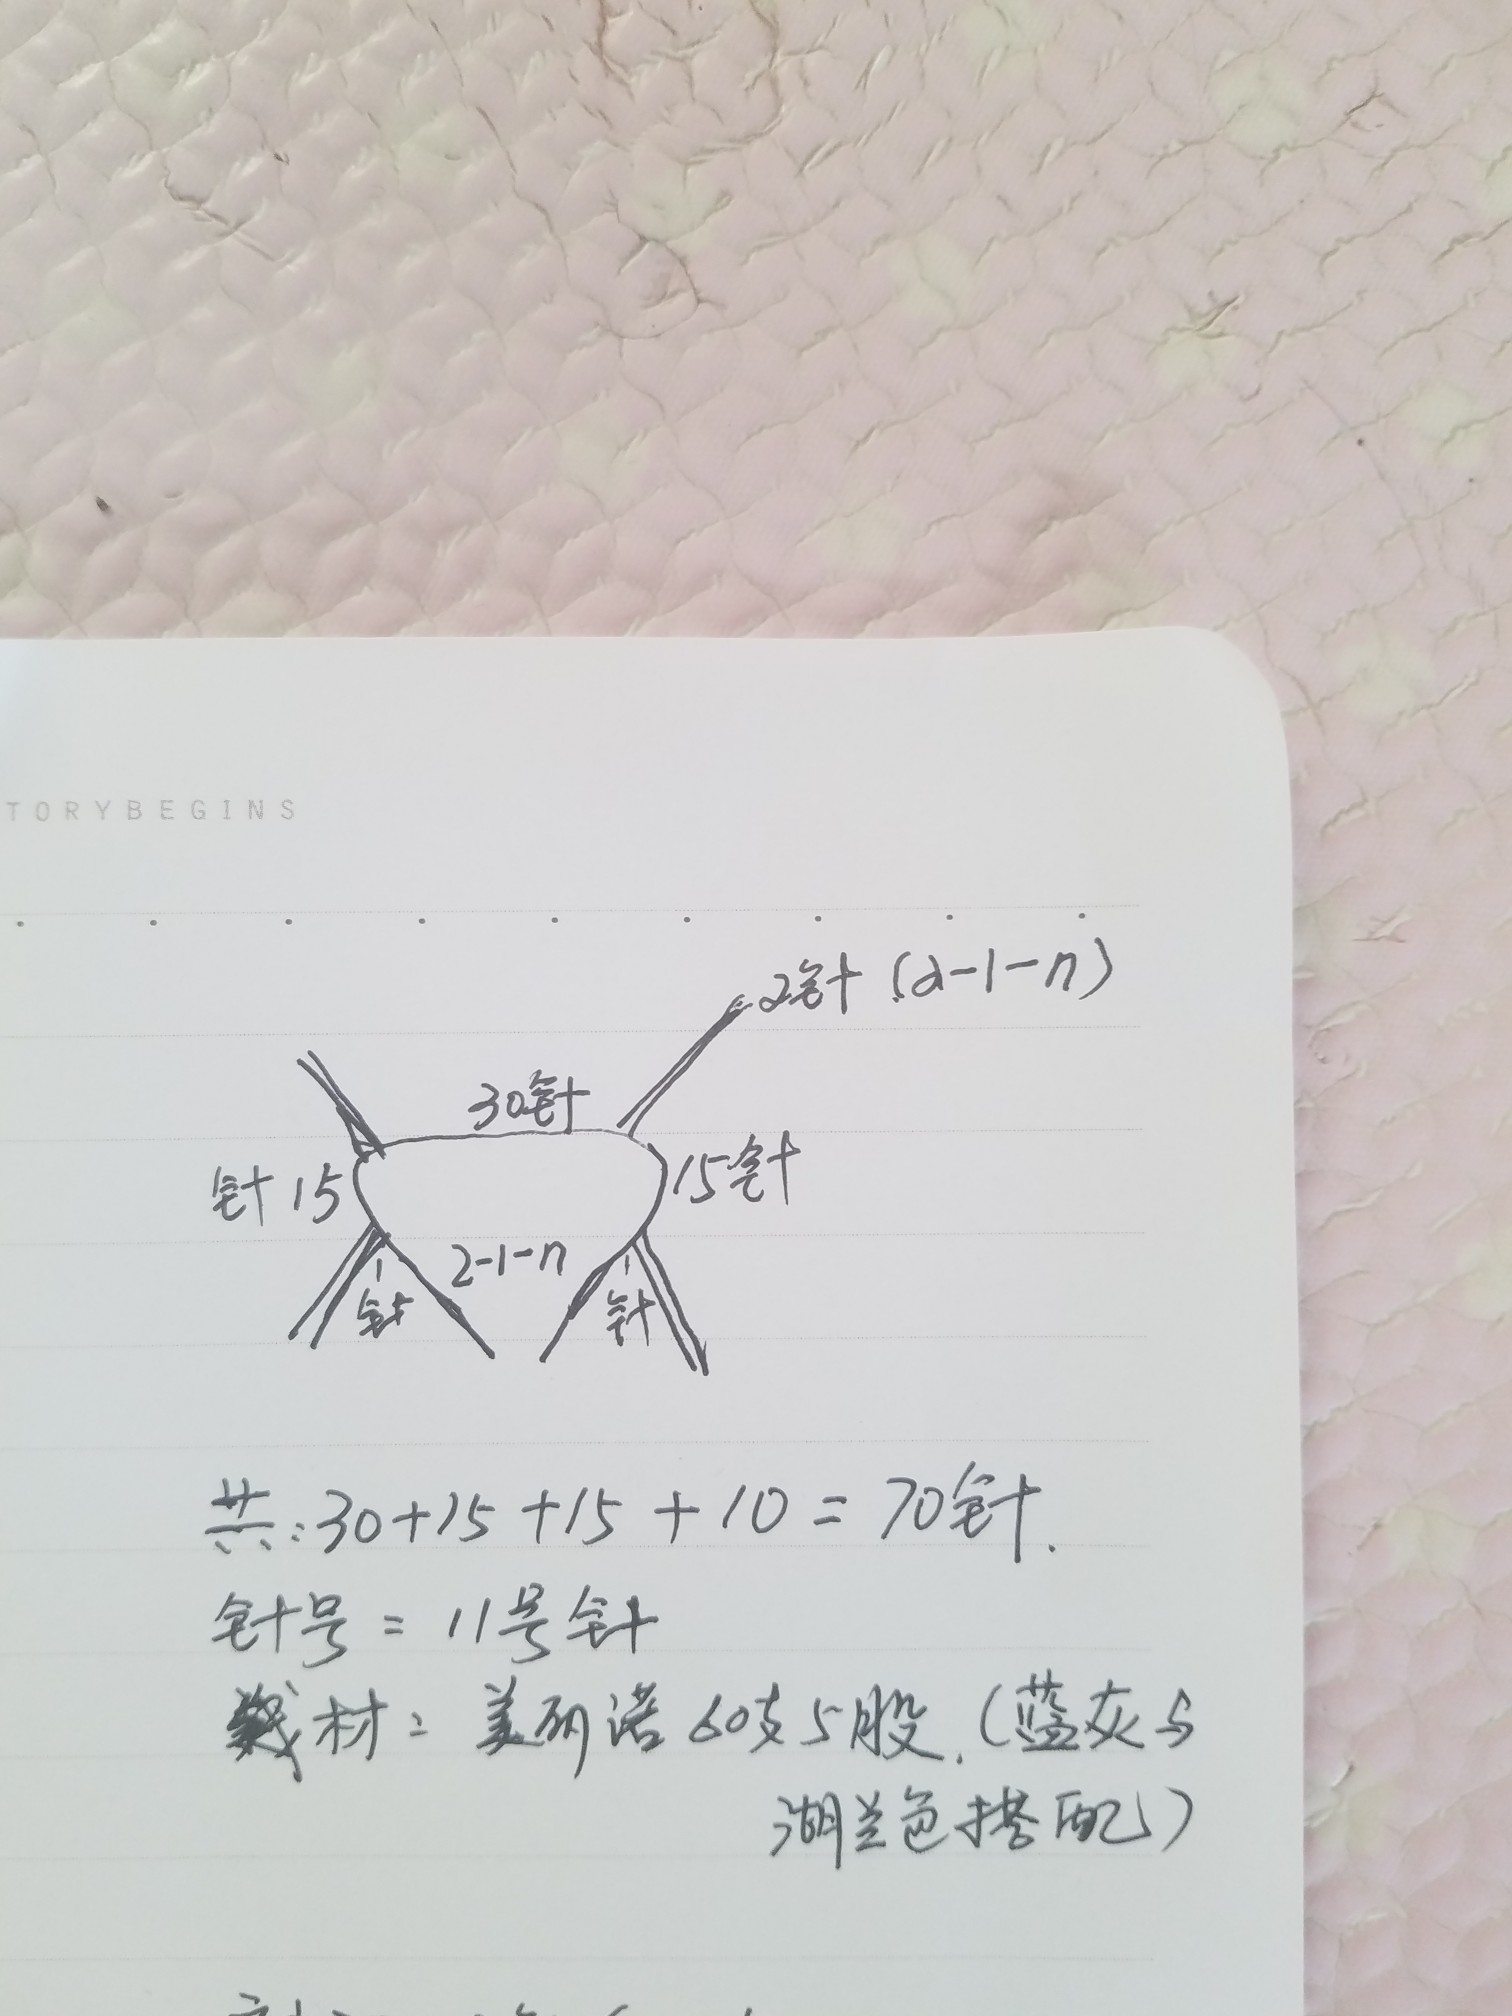 TORYBEGINS
2针 (2-1-n)
30针
针15
15针
2-1-n
1针
1针
共:30+15+15+10=70针.
针号=11号针
线材:美丽诺60支5股.(蓝灰与
湖兰色搭配)